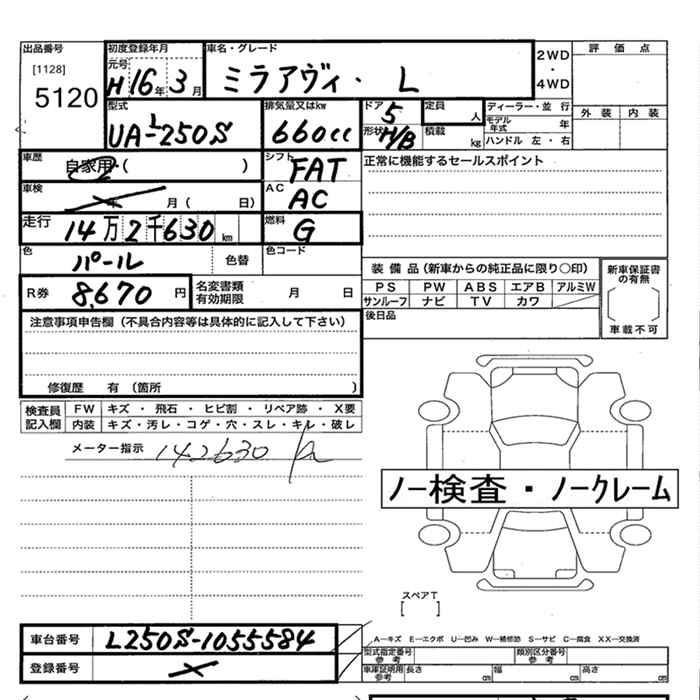 出品番号 初度登録年月 車名・グレード 2WD・4WD 評価点
[1128] 元号
5120 H16年3月 ミラアヴィ・L
型式 排気量又はkw ドア 5 定員 人 ディーラー・並行 外装 内装
UA-L250S 660cc 形状 H/B 積載 kg モデル年式 年
ハンドル 左・右
車歴 自家用・( ) シフト FAT 正常に機能するセールスポイント
車検 年 月( 日) AC AC
走行 14万2千630km 燃料 G
色 パール 色替 色コード
装備品(新車からの純正品に限り○印) 新車保証書の有無
R券 8,670円 名変書類有効期限 月 日 PS PW ABS エアB アルミW
サンルーフ ナビ TV カワ
注意事項申告欄(不具合内容等は具体的に記入して下さい) 後日品 車載不可
修復歴 有(箇所 )
検査員記入欄 FW キズ・飛石・ヒビ割・リペア跡・X要
内装 キズ・汚レ・コゲ・穴・スレ・キレ・破レ
メーター指示 142630
ノー検査・ノークレーム
スペアT
[ ]
車台番号 L250S-1055584 A-キズ E-エクボ U-凹み W-補修跡 S-サビ C-腐食 XX-交換済
型式指定番号 参考 類別区分番号 参考
登録番号 車庫証明用 参考 長さ cm 幅 cm 高さ cm